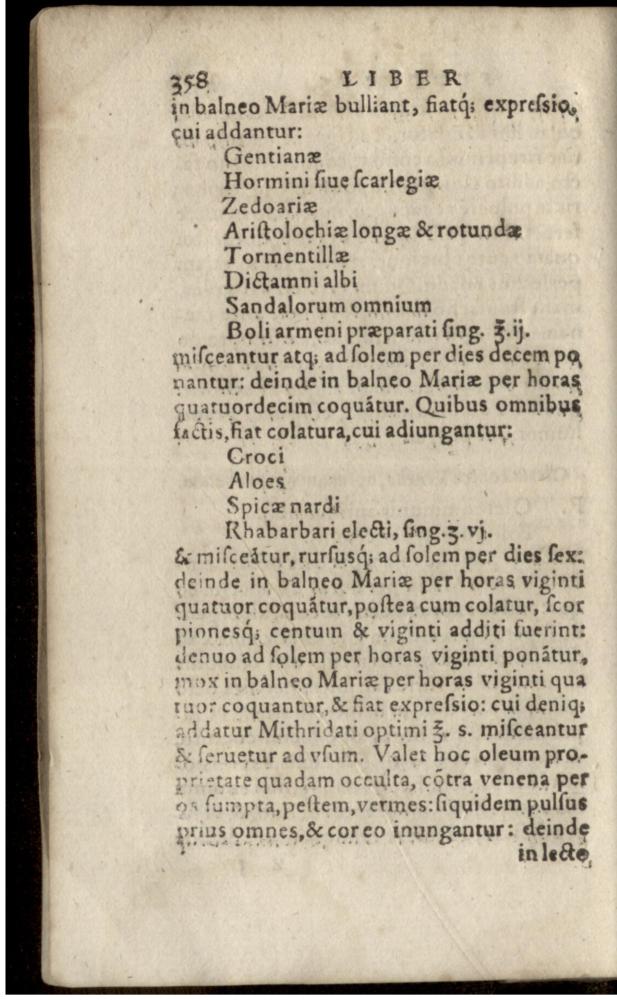 358 LIBER
in balneo Mariæ bulliant, fiatq́; expreſsio,
cui addantur:
Gentianæ
Hormini ſiue ſcarlegiæ
Zedoariæ
Ariſtolochiæ longæ & rotundæ
Tormentillæ
Dictamni albi
Sandalorum omnium
Boli armeni præparati ſing. ℥.ij.
miſceantur atq; ad ſolem per dies decem po
nantur: deinde in balneo Mariæ per horas
quatuordecim coquãtur. Quibus omnibus
factis, fiat colatura, cui adiungantur:
Croci
Aloes
Spicæ nardi
Rhabarbari electi, ſing.ʒ.vj.
& miſceãtur, rurſusq́; ad ſolem per dies ſex:
deinde in balneo Mariæ per horas viginti
quatuor coquãtur, poſtea cum colatur, ſcor
pionesq́; centum & viginti additi fuerint:
denuo ad ſolem per horas viginti ponãtur,
mox in balneo Mariæ per horas viginti qua
tuor coquantur, & fiat expreſsio: cui deniq;
addatur Mithridati optimi ℥. s. miſceantur
& ſeruetur ad vſum. Valet hoc oleum pro-
prietate quadam occulta, cõtra venena per
os ſumpta, peſtem, vermes: ſiquidem pulſus
prius omnes, & cor eo inungantur: deinde
in lecto